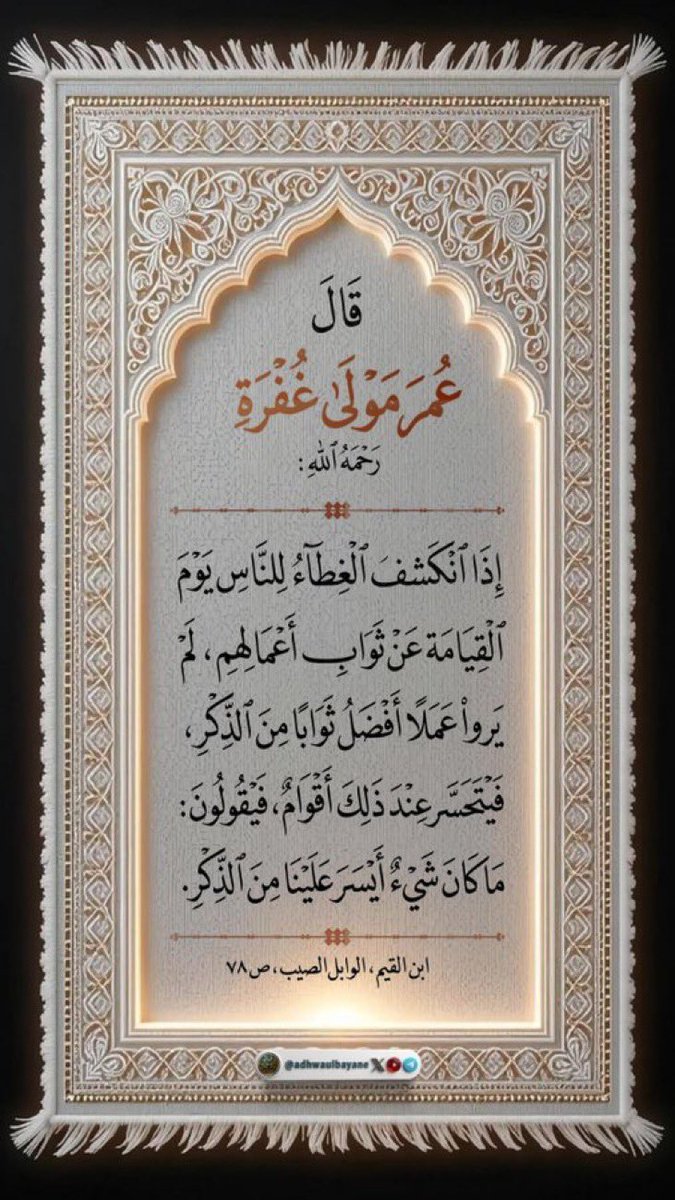 قَالَ
عُمَرَ مَوْلَىٰ غُفْرَةِ
رَحْمَهُ ٱللهِ:
إِذَا ٱنْكَشفَ ٱلْغِطَآءُ لِلنَّاسِ يَوْمَ
ٱلْقِيَامَة عَنْ ثَوَابِ أَعْمَالِهِمِ، لَمْ
يَروا۟ عَمَلًا أَفْضَلُ ثَوَابًا مِنَ ٱلذِّكْرِ،
فَيْتَحَسَّر عِنْدَ ذَلِكَ أَقْوَامٌ، فَيْقُولُونَ:
مَا كَانَ شَيْءٌ أَيْسَرَ عَلَيْنَا مِنَ ٱلذِّكْرِ.
ابن القيم، الوابل الصيب، ص٧٨
@adhwaulbayane